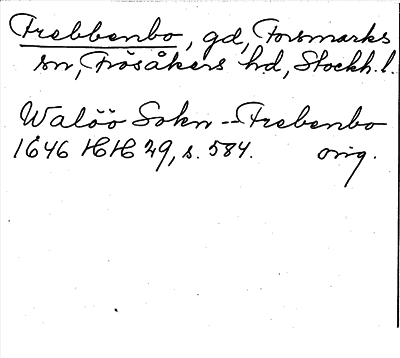 Frebbenbo, gd, Forsmarks
sn, Frösåkers hd, Stockh. l.
Walöö Sokn -- Frebenbo
1646 HH 29, s. 584. orig.